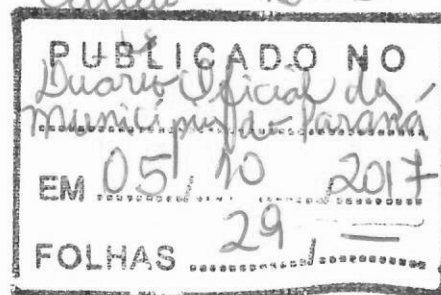 PUBLICADO NO
Diário Oficial dos
Municípios do Paraná
EM 05/10/2017
FOLHAS 29/—